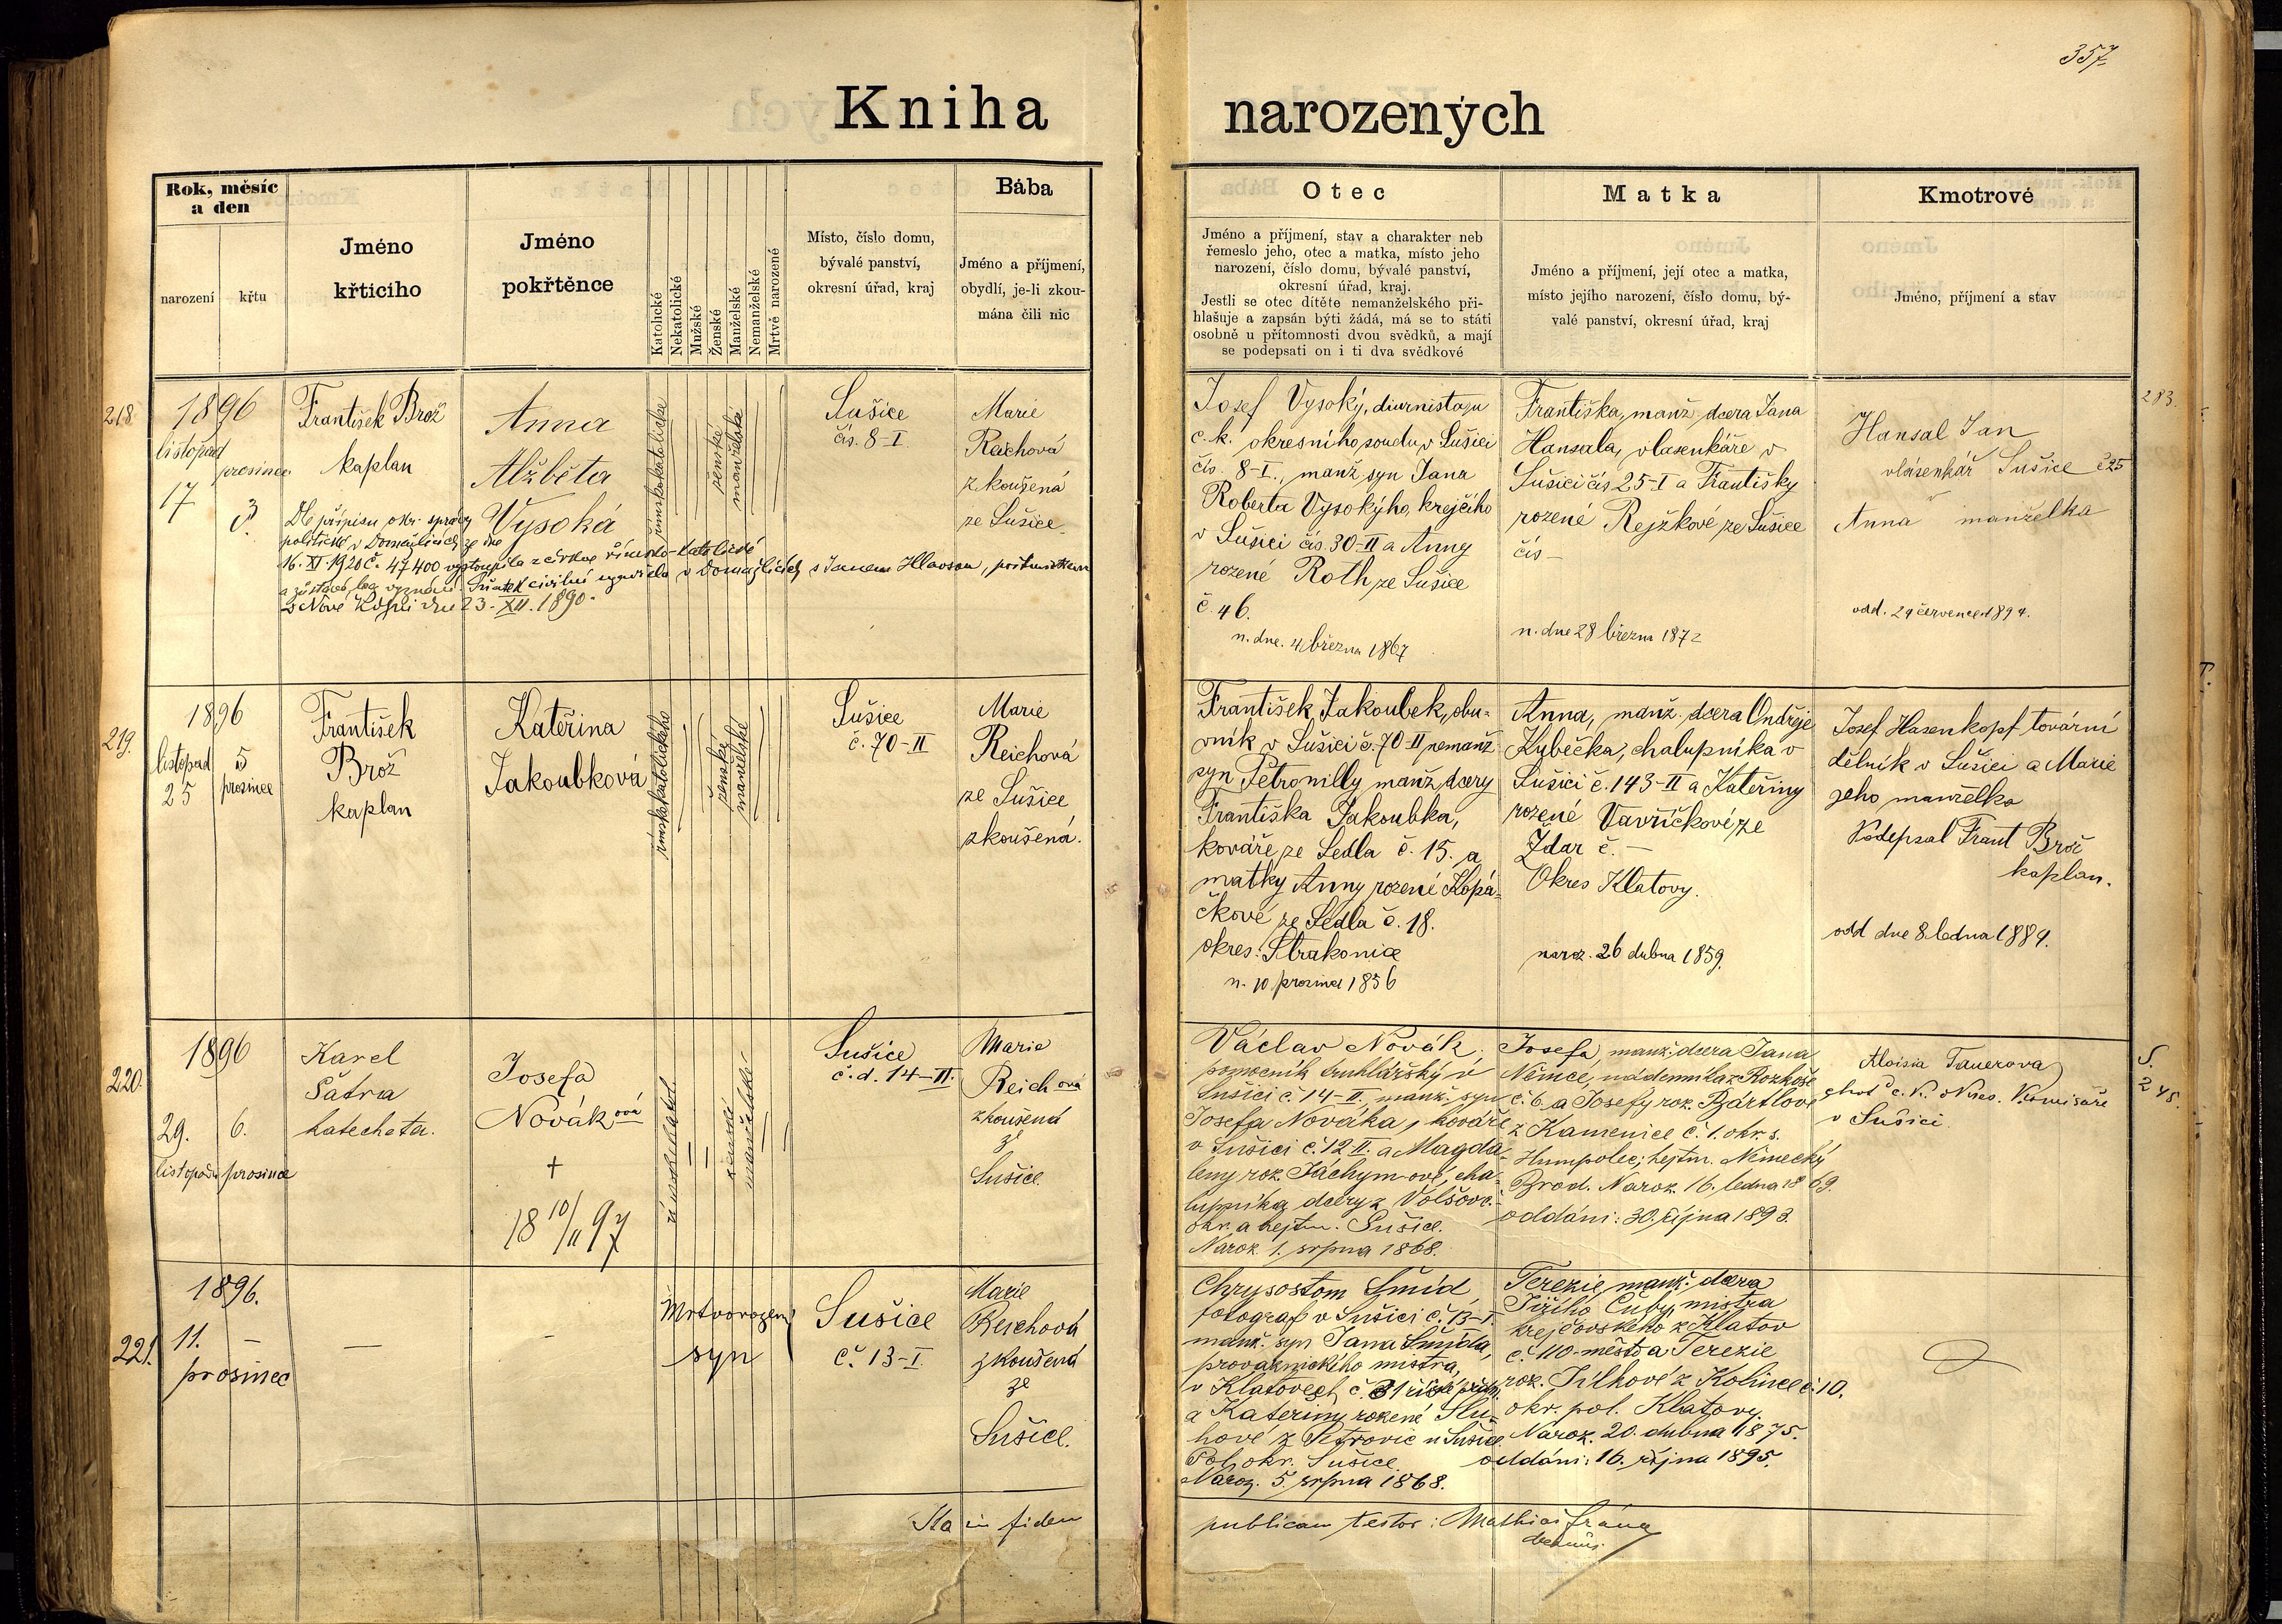 357
Kniha narozených
Rok, měsíc
a den
narození
křtu
Jméno
křticího
Jméno
pokřtěnce
Katolické
Nekatolické
Mužské
Ženské
Manželské
Nemanželské
Mrtvě narozené
Místo, číslo domu,
bývalé panství,
okresní úřad, kraj
Bába
Jméno a příjmení,
obydlí, je-li zkou-
mána čili nic
Otec
Jméno a příjmení, stav a charakter neb
řemeslo jeho, otec a matka, místo jeho
narození, číslo domu, bývalé panství,
okresní úřad, kraj.
Jestli se otec dítěte nemanželského při-
hlašuje a zapsán býti žádá, má se to státi
osobně u přítomnosti dvou svědků, a mají
se podepsati on i ti dva svědkové
Matka
Jméno a příjmení, její otec a matka,
místo jejího narození, číslo domu, bý-
valé panství, okresní úřad, kraj
Kmotrové
Jméno, příjmení a stav
218.
1896
listopad
prosinec
17
3.
František Brož
kaplan
Anna
Alžběta
Vysoká
římskokatolické
ženské
manželské
Sušice
čís. 8-I
Marie
Reichová
zkoušená
ze Sušice
Dle přípisu okr. správy
politické v Domažlicích ze dne
16. XI. 1920 č. 47400 vystoupila z církve římsko-katolické
a zůstává bez vyznání. Sňatek civilní uzavřela v Domažlicích s Janem Hlavsou,
dne 23. XII. 1890.
Josef Vysoký, diurnista ju
c. k. okresního soudu v Sušici
čís. 8-I., manž. syn Jana
Roberta Vysokýho, krejčího
v Sušici čís. 30-II a Anny
rozené Roth ze Sušice
č. 46.
n. dne. 4 března 1867
Františka, manž. dcera Jana
Hansala, vlasenkáře v
Sušici čís 25-I a Františky
rozené Rejžkové ze Sušice
čís –
n. dne 28 března 1872
Hansal Jan
vlásenkář Sušice č 25
Anna manželka
odd. 29 července 1894.
283.
219.
1896
listopad
25
5
prosince
František
Brož
kaplan
Kateřina
Jakoubková
římskokatolického
ženské
manželské
Sušice
č. 70-II
Marie
Reichová
ze Sušice
zkoušená.
František Jakoubek, obu-
vník v Sušici č. 70-II nemanž
syn Petronilly manž. dcery
Františka Jakoubka,
kováře ze Sedla č. 15. a
matky Anny rozené Kopá-
čkové ze Sedla č. 18.
okres: Strakonice
n. 10 prosince 1856
Anna, manž. dcera Ondřeje
Kubečka, chalupníka v
Sušici č. 143-II a Kateřiny
rozené Vavřičkové ze
Ždar č. –
Okres Klatovy.
naroz. 26 dubna 1859.
Josef Hasenkopf tovární
dělník v Sušici a Marie
jeho manželka
Podepsal Frant Brož
kaplan.
odd dne 8. ledna 1889.
220.
1896
29.
listopadu
6.
prosince
Karel
Šatra
katecheta.
Josefa
Nováková
+
18 10/II 97
římskokatol.
ženské
manželské
Sušice
č. d. 14-II.
Marie
Reichová
zkoušená
ze
Sušice.
Václav Novák,
pomocník truhlářský v
Sušici č. 14-II. manž. syn
Josefa Nováka, kováře
v Sušici č. 12-II. a Magda-
leny roz. Jáchymové, cha-
lupníka dcery z Volšov č. –
okr. a hejtm. Sušice.
Naroz. 1. srpna 1868.
Josefa manž. dcera Jana
Němce, nádenníka z Rozkoše
č. 6. a Josefy roz. Bártlové
z Kamenice č. 1. okr. s.
Humpolec; hejtm. Německý
Brod. Naroz. 16. ledna 1869.
oddáni: 30. října 1893.
Aloisia Tauerova
choť c. k. okres. komisaře
v Sušici.
S.
245.
221.
1896.
11. –
prosinec
–
–
Mrtvorozený
syn
Sušice
č. 13-I
Marie
Reichová
zkoušená
ze
Sušice.
Chrysostom Šmíd,
fotograf v Sušici č. 13-I.
manž. syn Jana Šmída,
provaznického mistra,
v Klatovech č. 31
a Kateřiny rozené Slu-
hové z Petrovic u Sušice
Pol. okr. Sušice.
Naroz. 5. srpna 1868.
Terezie, manž. dcera
Jiřího Čuby, mistra
krejčovského z Klatov
č. 110-město a Terezie
roz. Jílkové z Kolince č. 10.
okr. pol. Klatovy.
Naroz. 20. dubna 1875.
oddáni: 16. října 1895.
Ita in fidem
publicam testor: Mathias
děkan